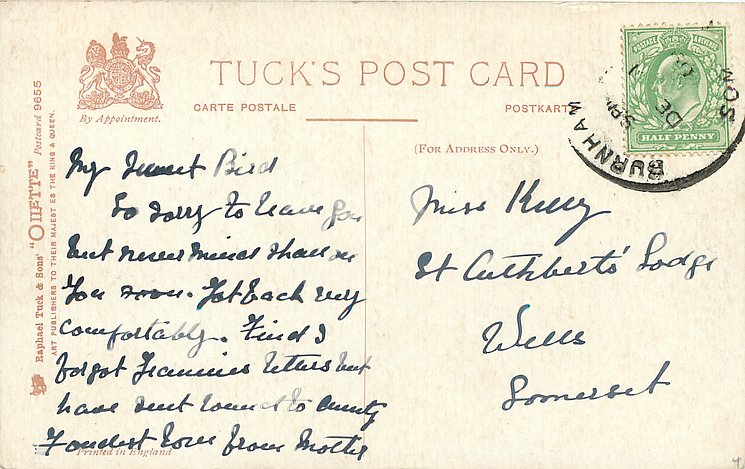 TUCK'S POST CARD
CARTE POSTALE
POSTKARTE
By Appointment.
(FOR ADDRESS ONLY.)
Raphael Tuck & Sons' "OILETTE" Postcard 9655
ART PUBLISHERS TO THEIR MAJESTIES THE KING & QUEEN.
POSTAGE & REVENUE
HALF PENNY
BURNHAM
SOM
DE
My Bird
So sorry to leave you
but never mind shall see
you soon. Got back very
comfortably. Find I
forgot letters but
have sent to Aunty
Fondest love from Mother
Printed in England
Miss Kelly
St Cuthberts' Lodge
Wells
Somerset